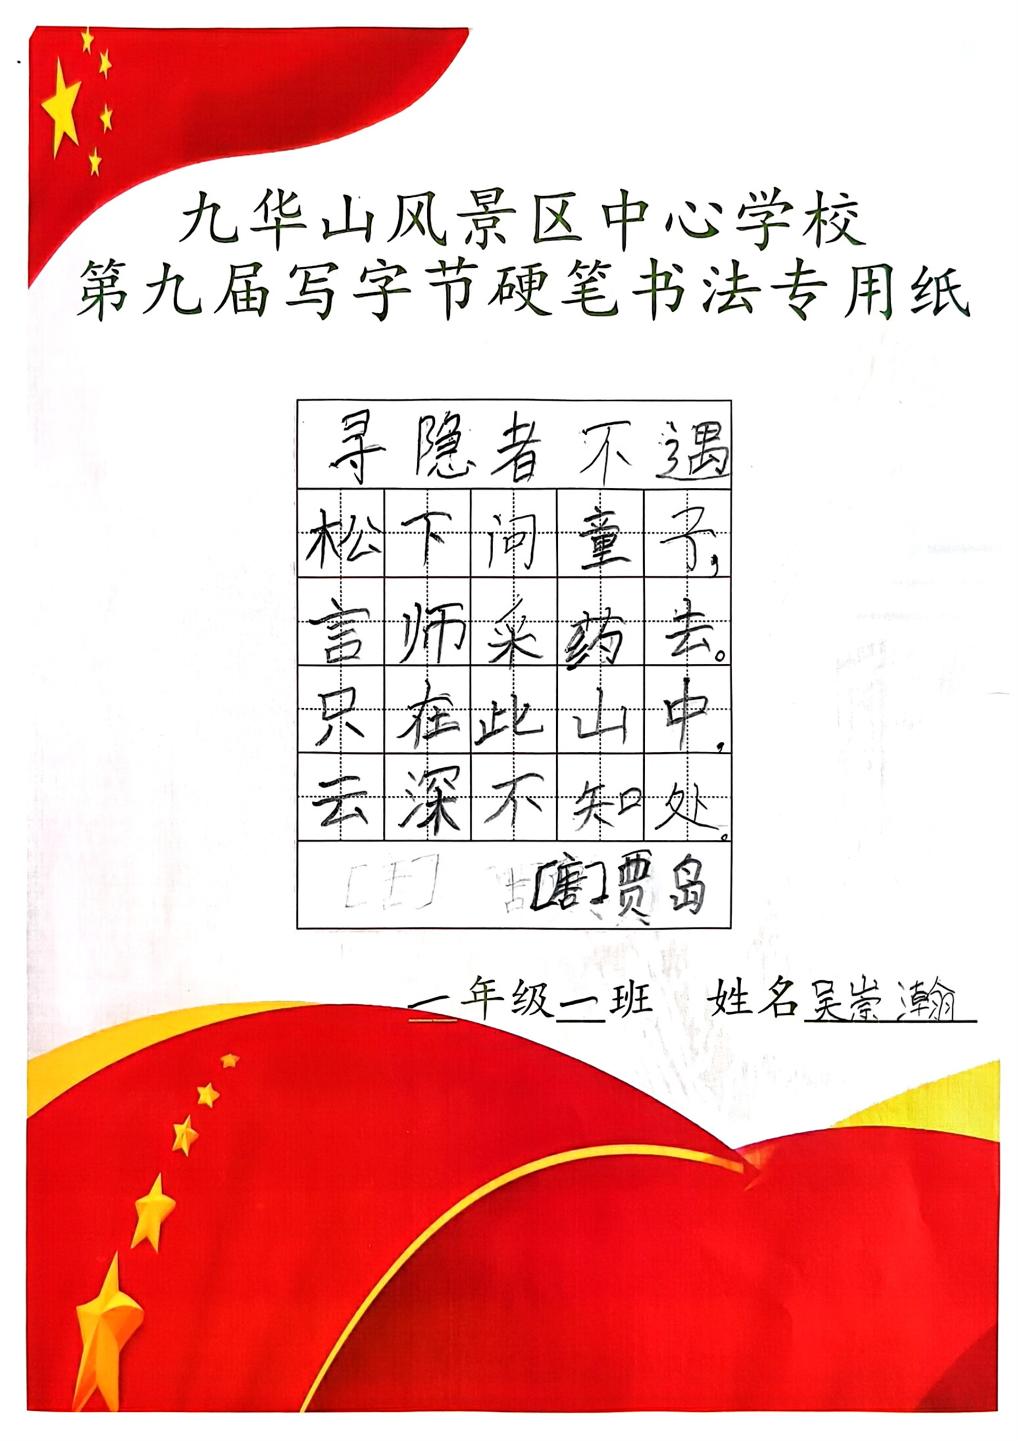 九华山风景区中心学校
第九届写字节硬笔书法专用纸
寻隐者不遇
松下问童子,
言师采药去。
只在此山中,
云深不知处。
[唐]贾岛
一年级一班 姓名吴崇瀚